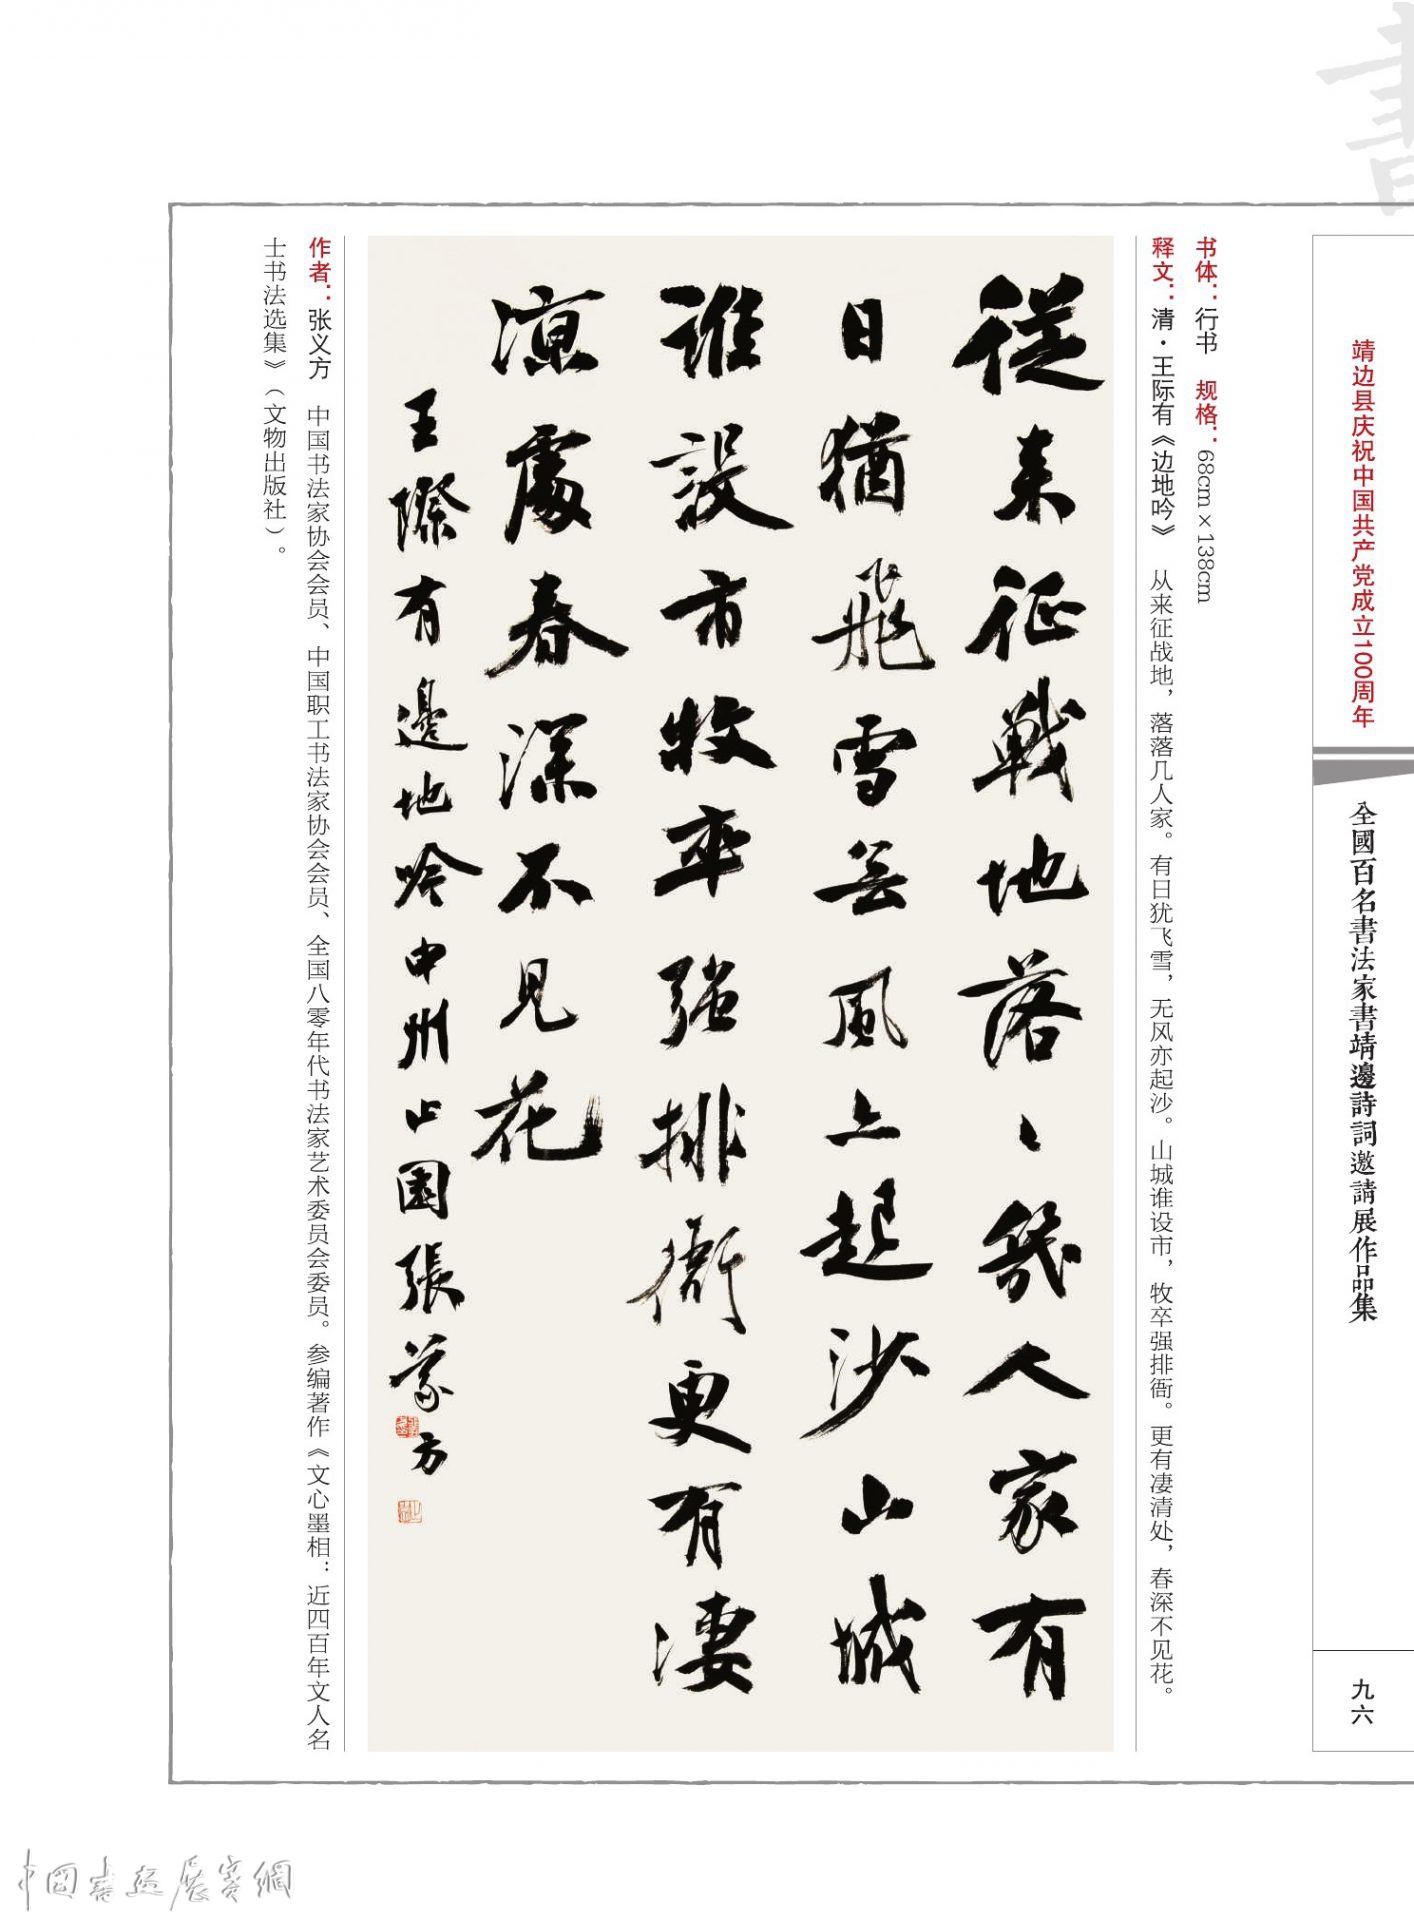 書
靖边县庆祝中国共产党成立100周年
全國百名書法家書靖邊詩詞邀請展作品集
九六
书体：行书 规格：68cm×138cm
释文：清·王际有《边地吟》 从来征战地，落落几人家。有日犹飞雪，无风亦起沙。山城谁设市，牧卒强排衙。更有凄清处，春深不见花。
從来征戰地落々幾人家有
日猶飛雪無風亦起沙山城
誰設市牧卒强排衙更有凄
凉處春深不見花
王際有邊地吟申州止園張義方
作者：张义方 中国书法家协会会员、中国职工书法家协会会员、全国八零年代书法家艺术委员会委员。参编著作《文心墨相：近四百年文人名
士书法选集》（文物出版社）。
中國書画展賽網